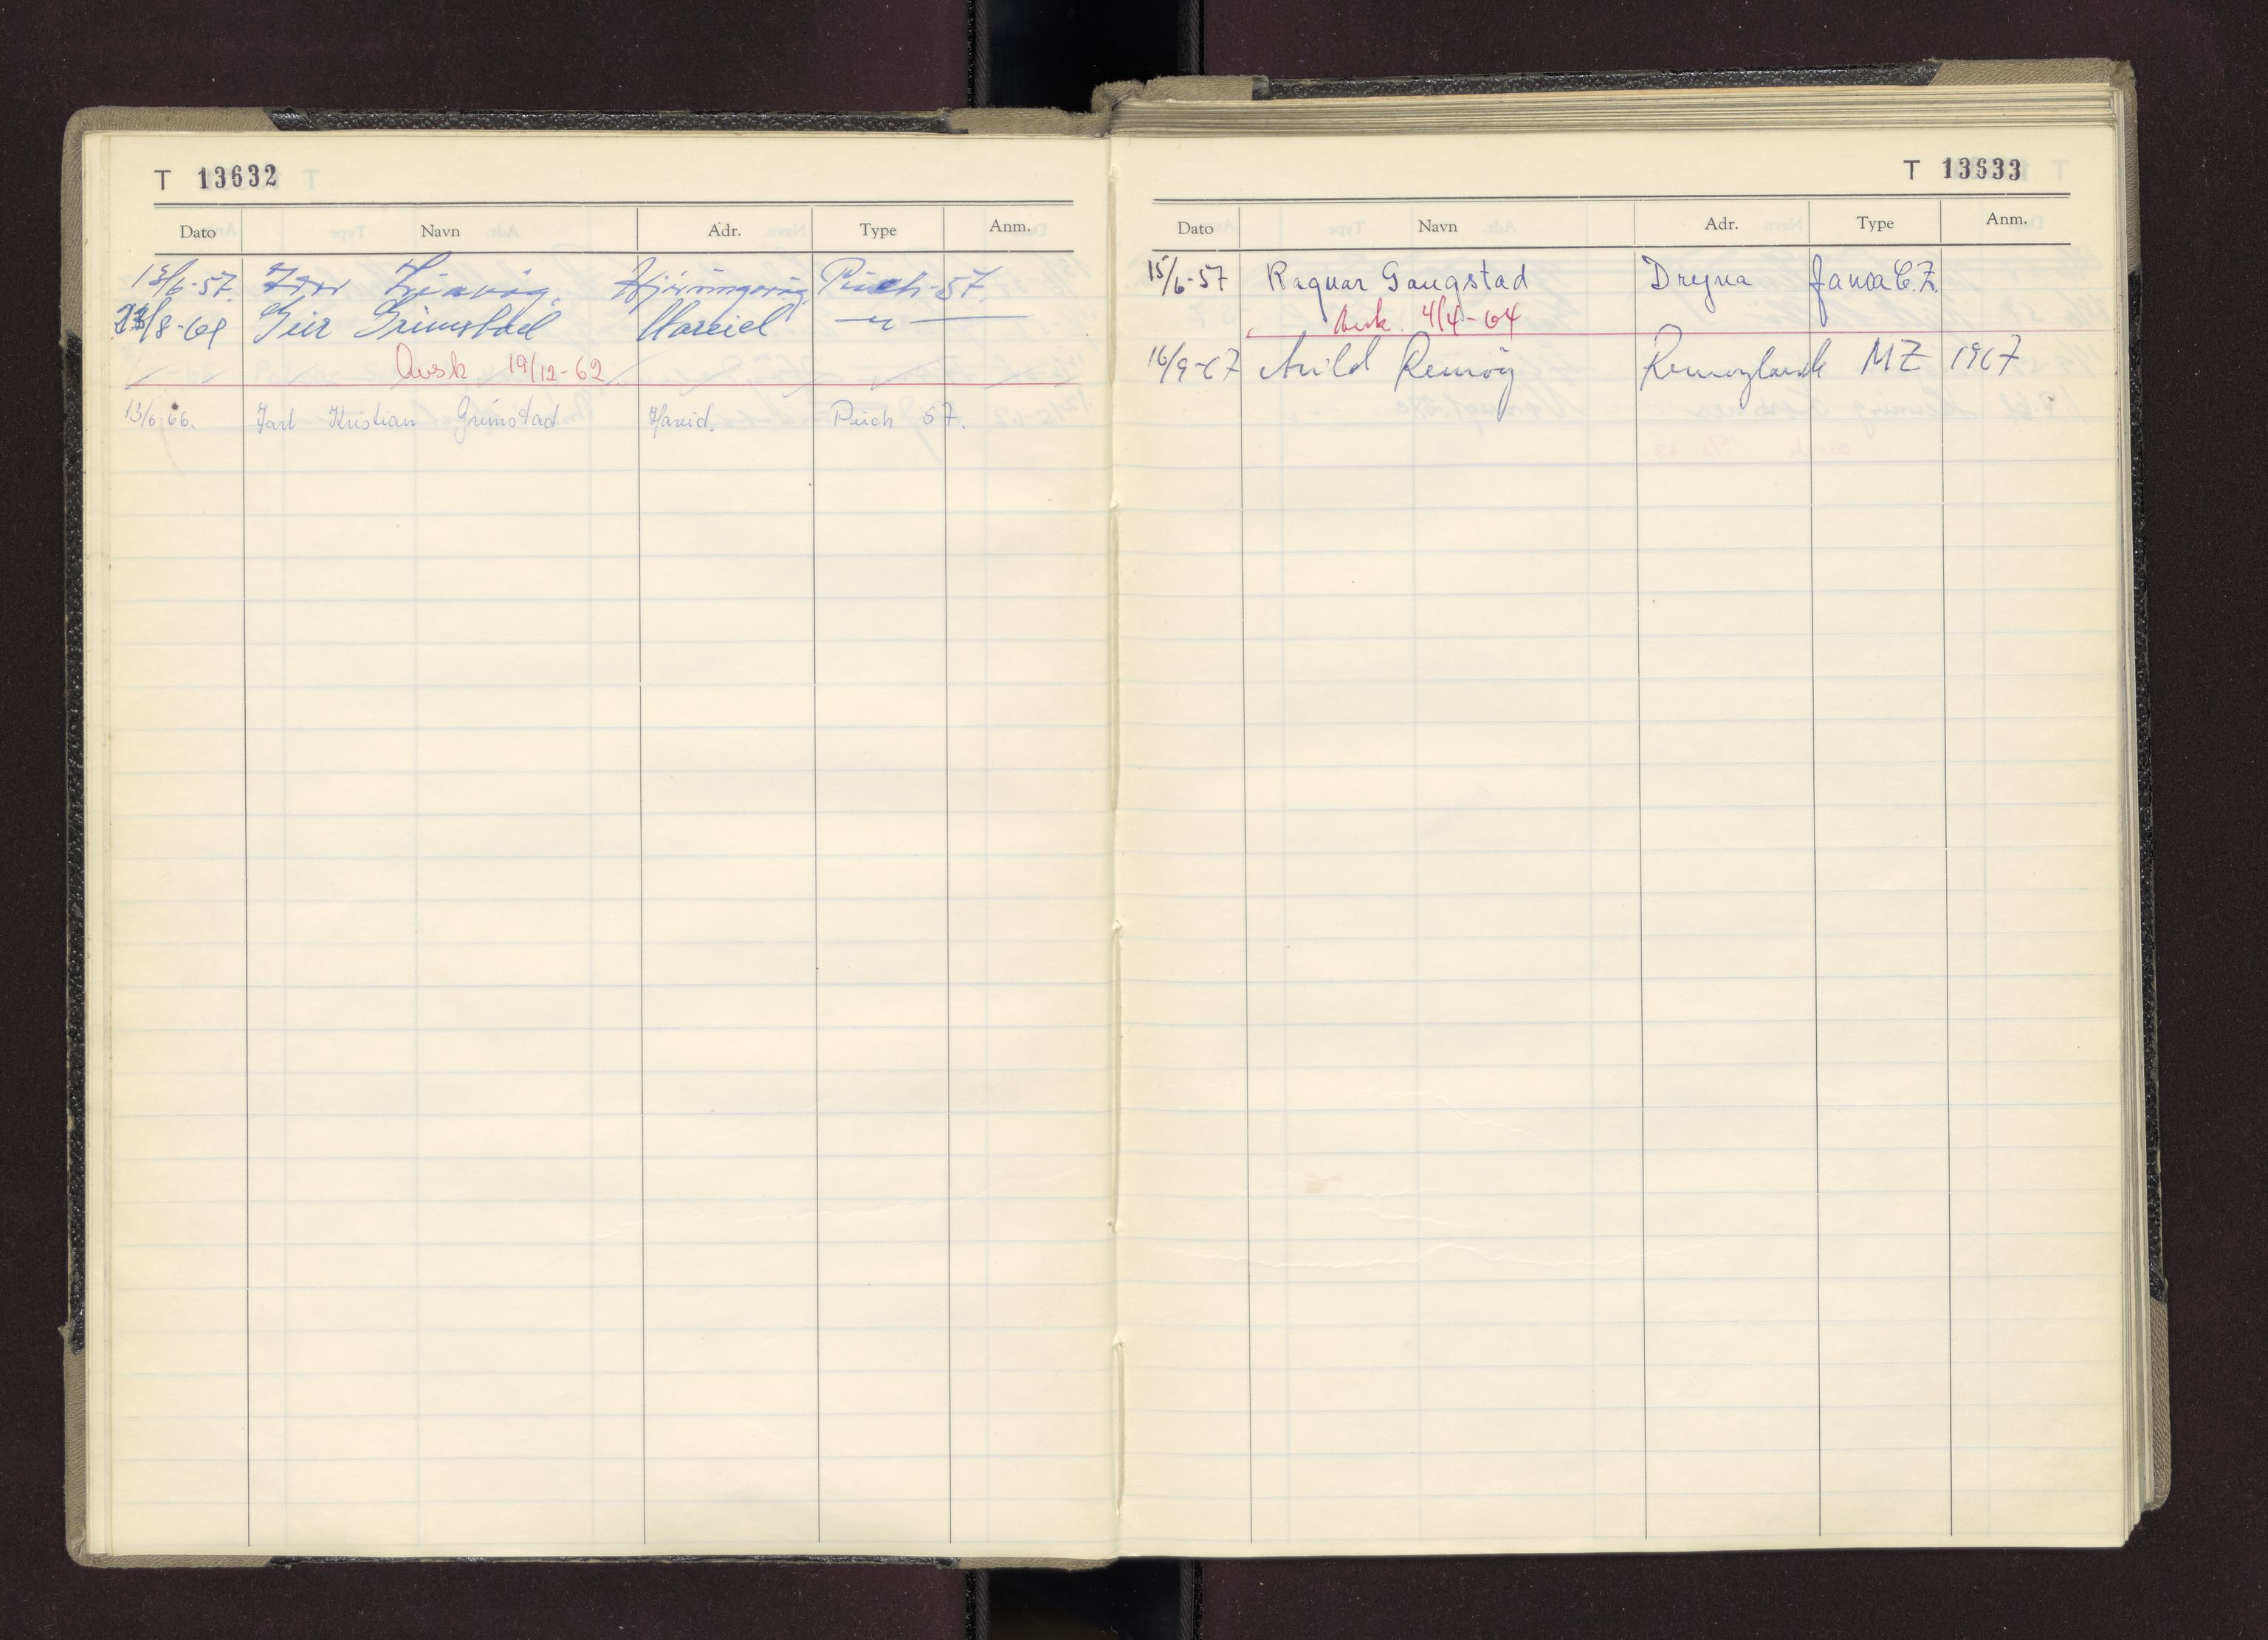 T 13632
Dato Navn Adr. Type Anm.
13/6-57. Liavåg Hjörungavåg Puch-57.
23/8-61 Geir Grimstad Hareid —"—
Avsk 19/12-62.
13/6-66. Jarl Kristian Grimstad Hareid. Puch 57.
T 13633
Dato Navn Adr. Type Anm.
15/6-57 Ragnar Gangstad Dryna Jawa C.Z.
Avsk. 4/4-64
16/9-67 Arild Remöy Remöylandet MZ 1967